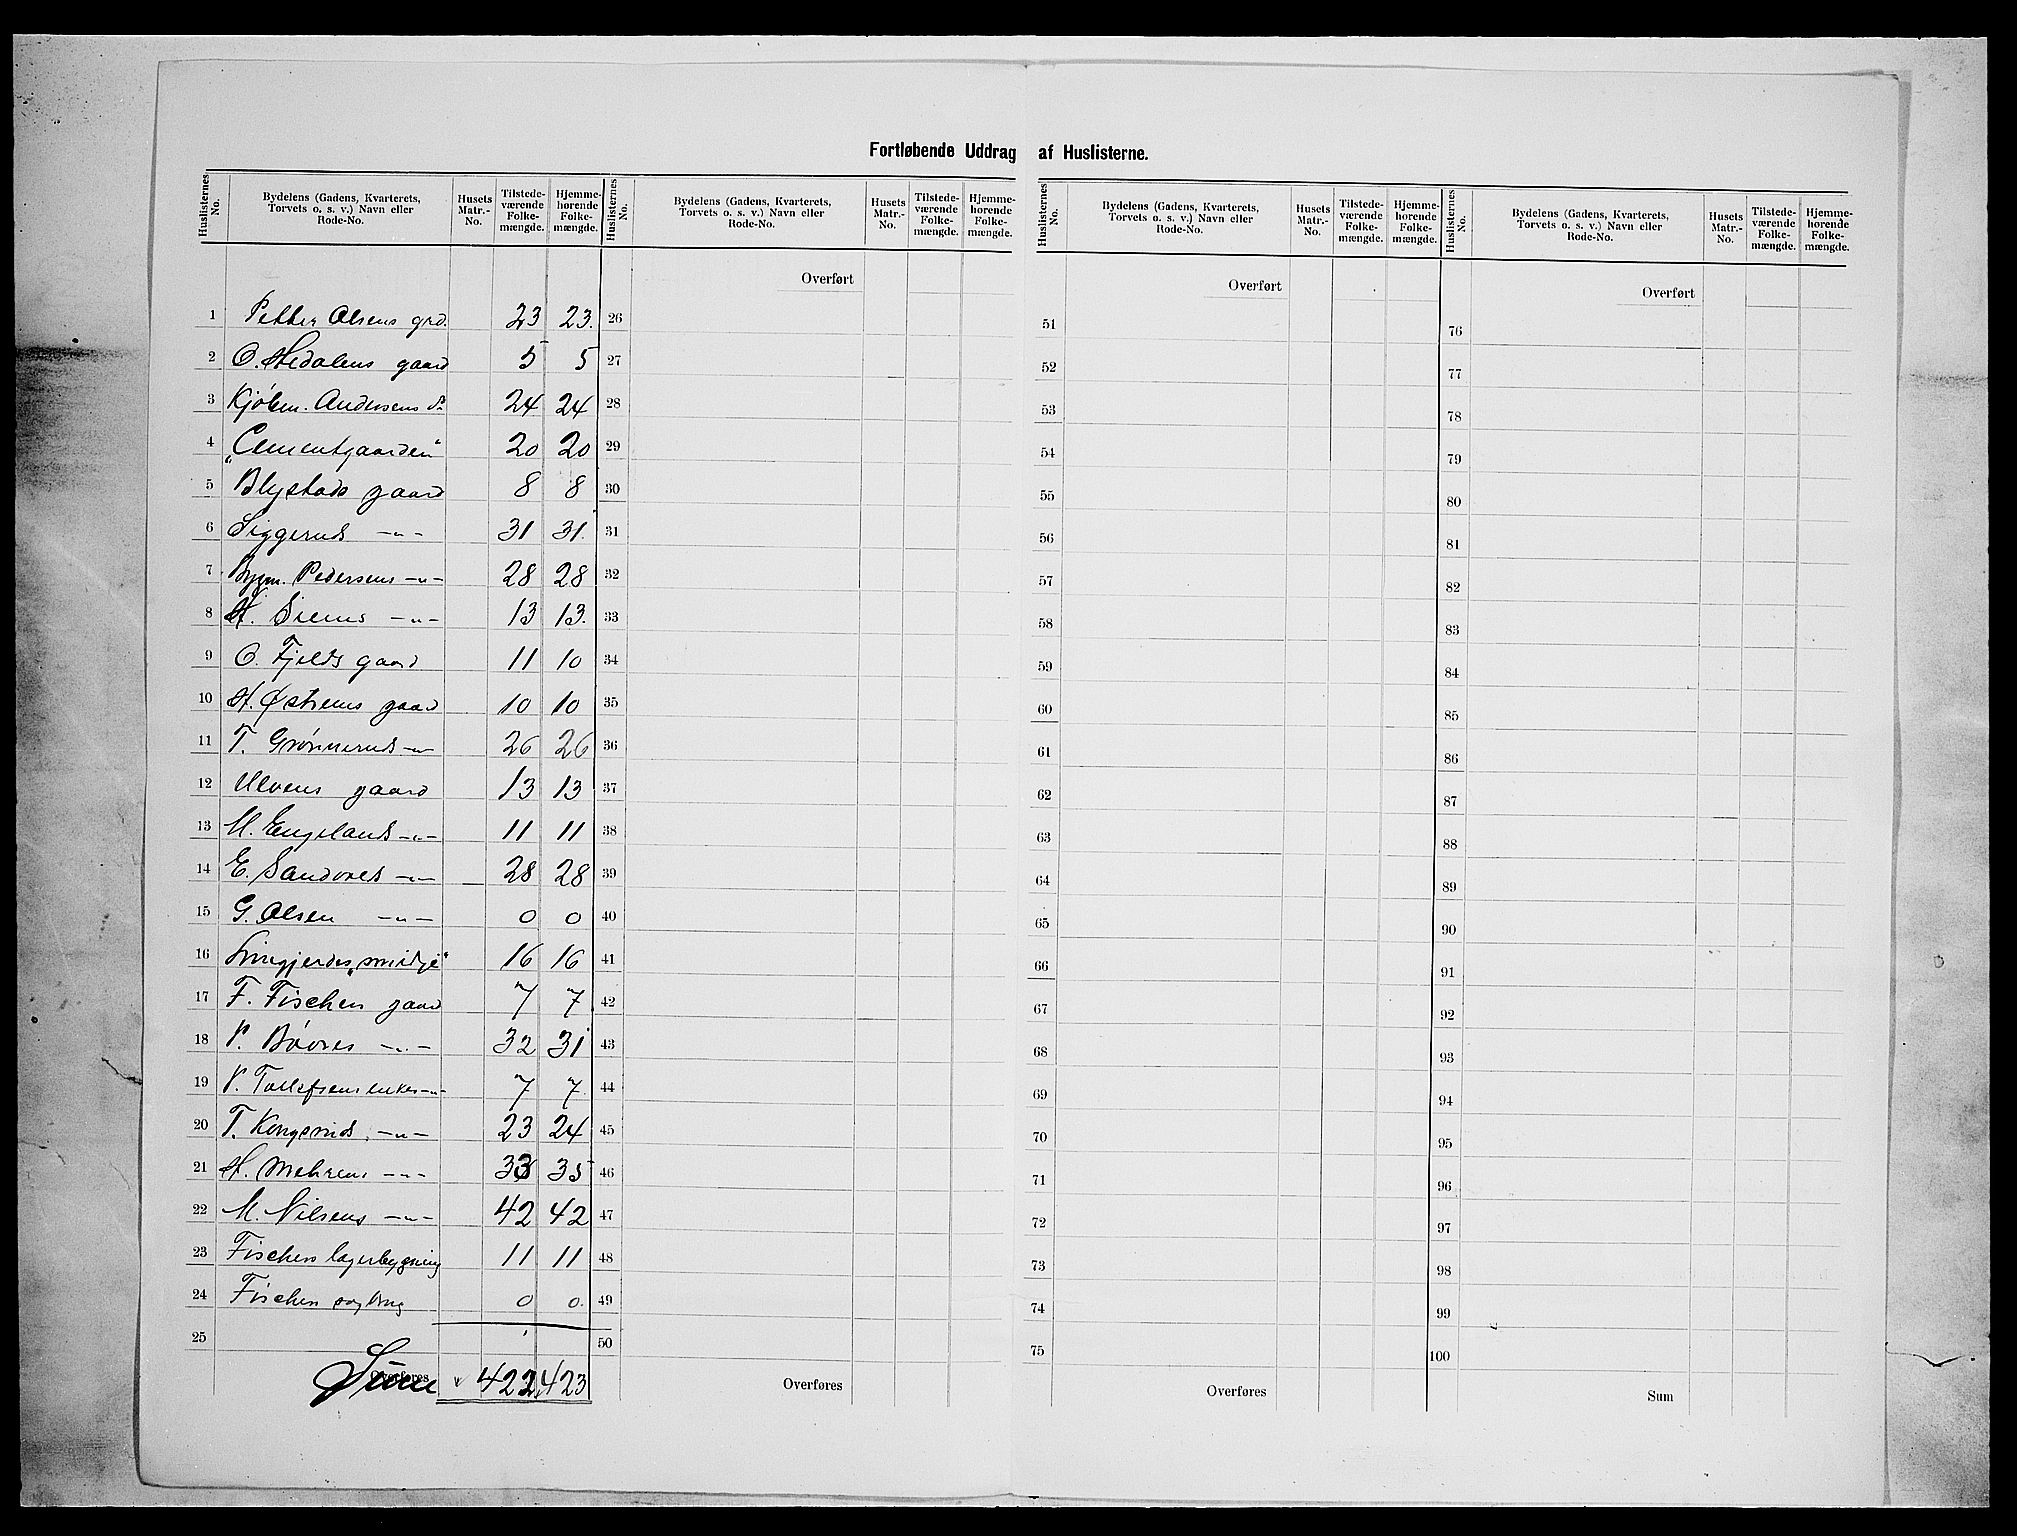 Fortløbende Uddrag af Huslisterne.
Huslisternes No. Bydelens (Gadens, Kvarterets, Torvets o. s. v.) Navn eller Rode-No. Husets Matr.-No. Tilstedeværende Folkemængde. Hjemmehørende Folkemængde.
Huslisternes No. Bydelens (Gadens, Kvarterets, Torvets o. s. v.) Navn eller Rode-No. Husets Matr.-No. Tilstedeværende Folkemængde. Hjemmehørende Folkemængde.
Huslisternes No. Bydelens (Gadens, Kvarterets, Torvets o. s. v.) Navn eller Rode-No. Husets Matr.-No. Tilstedeværende Folkemængde. Hjemmehørende Folkemængde.
Huslisternes No. Bydelens (Gadens, Kvarterets, Torvets o. s. v.) Navn eller Rode-No. Husets Matr.-No. Tilstedeværende Folkemængde. Hjemmehørende Folkemængde.
Overført Overført Overført
1 Petter Olsens grd. 23 23. 26 51 76
2 O. Hedalens gaard 5 5 27 52 77
3 Kjøbm. Andersens do 24 24 28 53 78
4 "Cementgaarden" 20 20 29 54 79
5 Blystads gaard 8 8 30 55 80
6 Siggeruds -"- 31 31. 31 56 81
7 Bygm. Pedersens -"- 28 28 32 57 82
8 H. -"- 13 13. 33 58 83
9 O. Fjelds gaard 11 10 34 59 84
10 H. Østrems gaard 10 10 35 60 85
11 T. Grønneruds -"- 26 26 36 61 86
12 Ulvens gaard 13 13 37 62 87
13 M. Engelands -"- 11 11 38 63 88
14 E. Sandvolds -"- 28 28 39 64 89
15 G. Olsen -"- 0 0 40 65 90
16 "smidje" 16 16 41 66 91
17 F. Fischers gaard 7 7 42 67 92
18 P. -"- 32 31 43 68 93
19 P. Tollefsens enkes -"- 7 7. 44 69 94
20 T. Kongsruds -"- 23 24 45 70 95
21 H. Mehrens -"- 33 35 46 71 96
22 M. Nilsens -"- 42 42 47 72 97
23 Fischers lagerbygning 11 11 48 73 98
24 Fischers sagbrug 0 0. 49 74 99
25 50 75 100
Overføres Sum 422 423 Overføres Overføres Sum